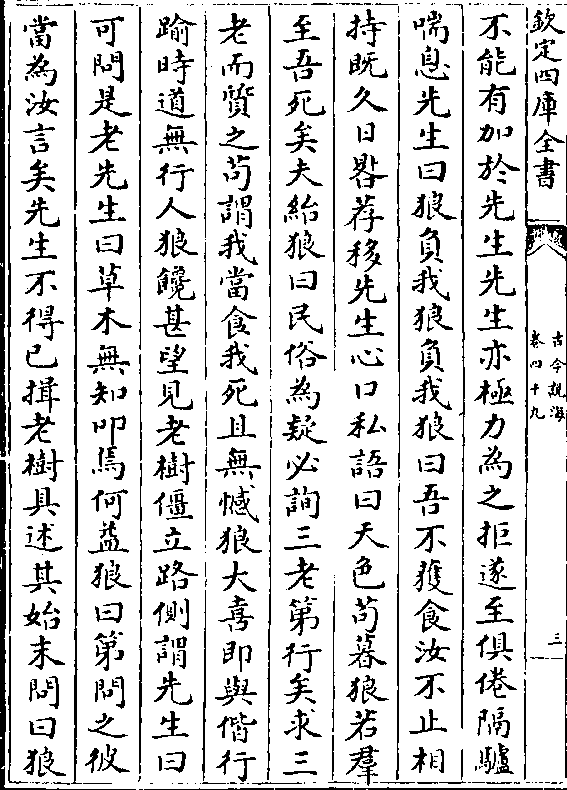 欽定四庫全書
古今説海
卷四十九
三
不能有加於先生先生亦極力為之拒遂至俱倦隔驢
喘息先生曰狼負我狼負我狼曰吾不獲食汝不止相
持既久日晷荐移先生心口私語曰天色茍暮狼若羣
至吾死矣夫紿狼曰民俗為疑必詢三老第行矣求三
老而質之茍謂我當食我死且無憾狼大喜即與偕行
踰時道無行人狼饞甚望見老樹僵立路側謂先生曰
可問是老先生曰草木無知叩焉何益狼曰第問之彼
當為汝言矣先生不得已揖老樹具述其始末問曰狼